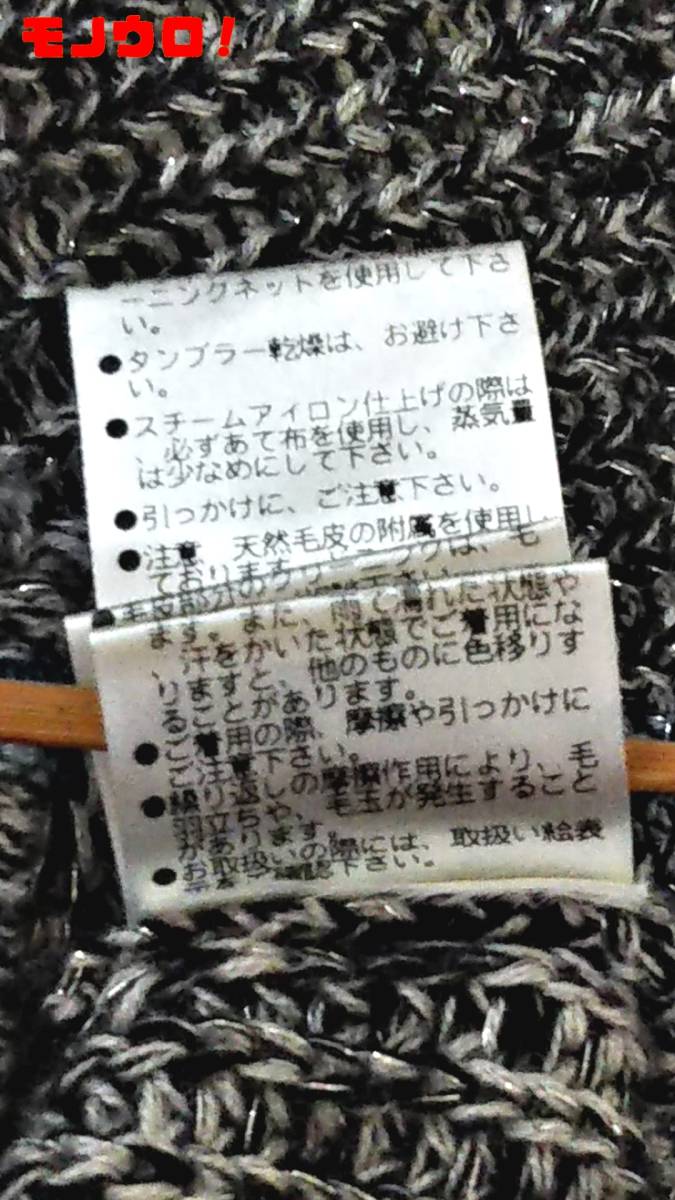 モノウロ!
ーニングネットを使用して下さ
い。
●タンブラー乾燥は、お避け下さ
い。
●スチームアイロン仕上げの際は
、必ずあて布を使用し、蒸気量
は少なめにして下さい。
●引っかけに、ご注意下さい。
●注意、天然毛皮の附属を使用し
ております
す。また、雨で濡れた状態や
、汗をかいた状態でご着用にな
りますと、他のものに色移りす
ることがあります。
●ご着用の際、摩擦や引っかけに
ご注意下さい。
●繰り返しの摩擦作用により、毛
羽立ちや、毛玉が発生すること
があります。
●お取扱いの際には、取扱い絵表
示をご確認下さい。